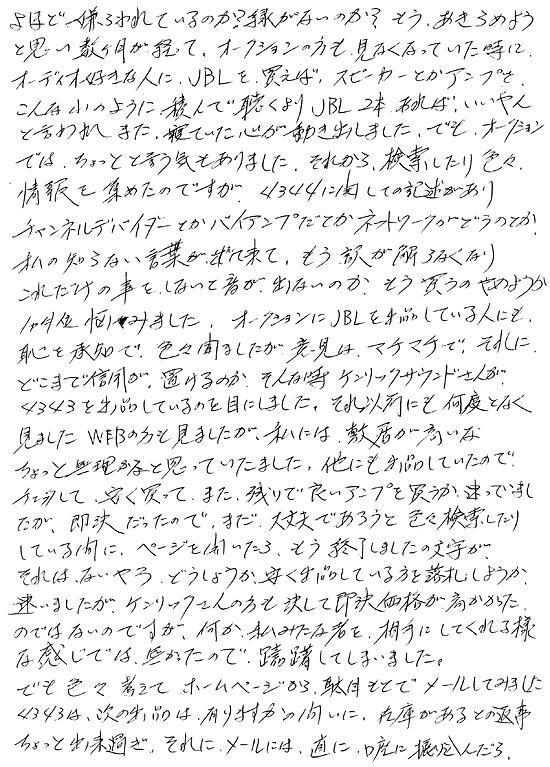 よほど嫌われているのか?縁がないのか? もう、あきらめよう
と思い数ヶ月が経って、オークションの方も見なくなっていた時に、
オーディオ好きな人に、JBLを買えば、スピーカーとかアンプを、
こんな小のように積んで聴くよりJBL2本あれば、いいやん
と言われ、また、寝ていた心が動き出しました。でも、オークション
では、ちょっとと言う気もありました。それから、検索したり色々、
情報を集めたのですが、4344に関しての記述があり
チャンネルデバイダーとかバイアンプだとかネットワークがどうのとか、
私の知らない言葉が出て来て、もう訳が解らなくなり
これだけの事をしないと音が出ないのか、もう買うのやめようか
1ヶ月位悩みました。オークションにJBLを出品している人にも、
恥を承知で、色々聞ましたが意見は、マチマチで、それに、
どこまで信用が、置けるのか、そんな時ケンリックサウンドさんが、
4343を出品しているのを目にしました。それ以前にも何度となく
見ましたWEBの方も見ましたが、私には、敷居が高いな
ちょっと無理かなと思っていたました。他にも出品していたので、
して、安く買って、また、残りで良いアンプを買うか迷っていまし
たが、即決だったので、まだ、大丈夫であろうと色々検索したり
している間に、ページを開いたら、もう終了しましたの文字が、
それは、ないやろ、どうしようか、安く出品している方を落札しようか、
迷いましたが、ケンリックさんの方も決して即決価格が高かかった
のではないのですが、何か、私みたな者を、相手にしてくれる様
な感じでは無かったので、躊躇してしまいました。
でも色々考えてホームページから、駄目もとでメールしてみました
4343は、次の出品は、有りますかの問いに、在庫があるとの返事
ちょっと出来過ぎ、それに、メールには、直に、口座に振り込んだら、